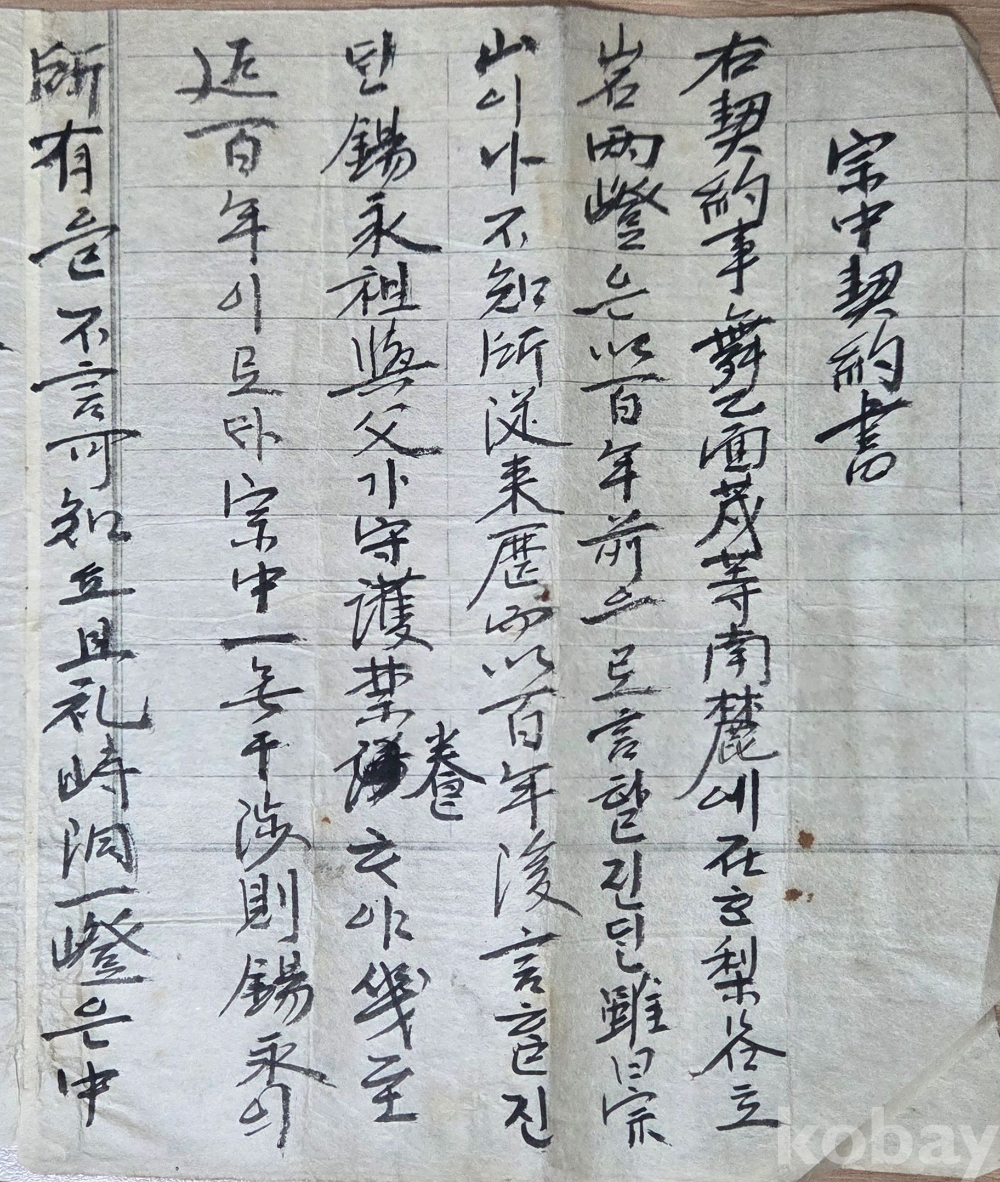 宗中契約書
右契約事舞乙面茂等南麓에在한梨谷立
岩兩嶝은以百年前으로言할진단雖曰宗
山이나不知所從来歷而以百年後言할진
단錫永祖與父가守護禁養하야幾至
近百年이도다宗中一無干涉則錫永의
所有은不言可知며且礼峙洞一嶝은中
kobay